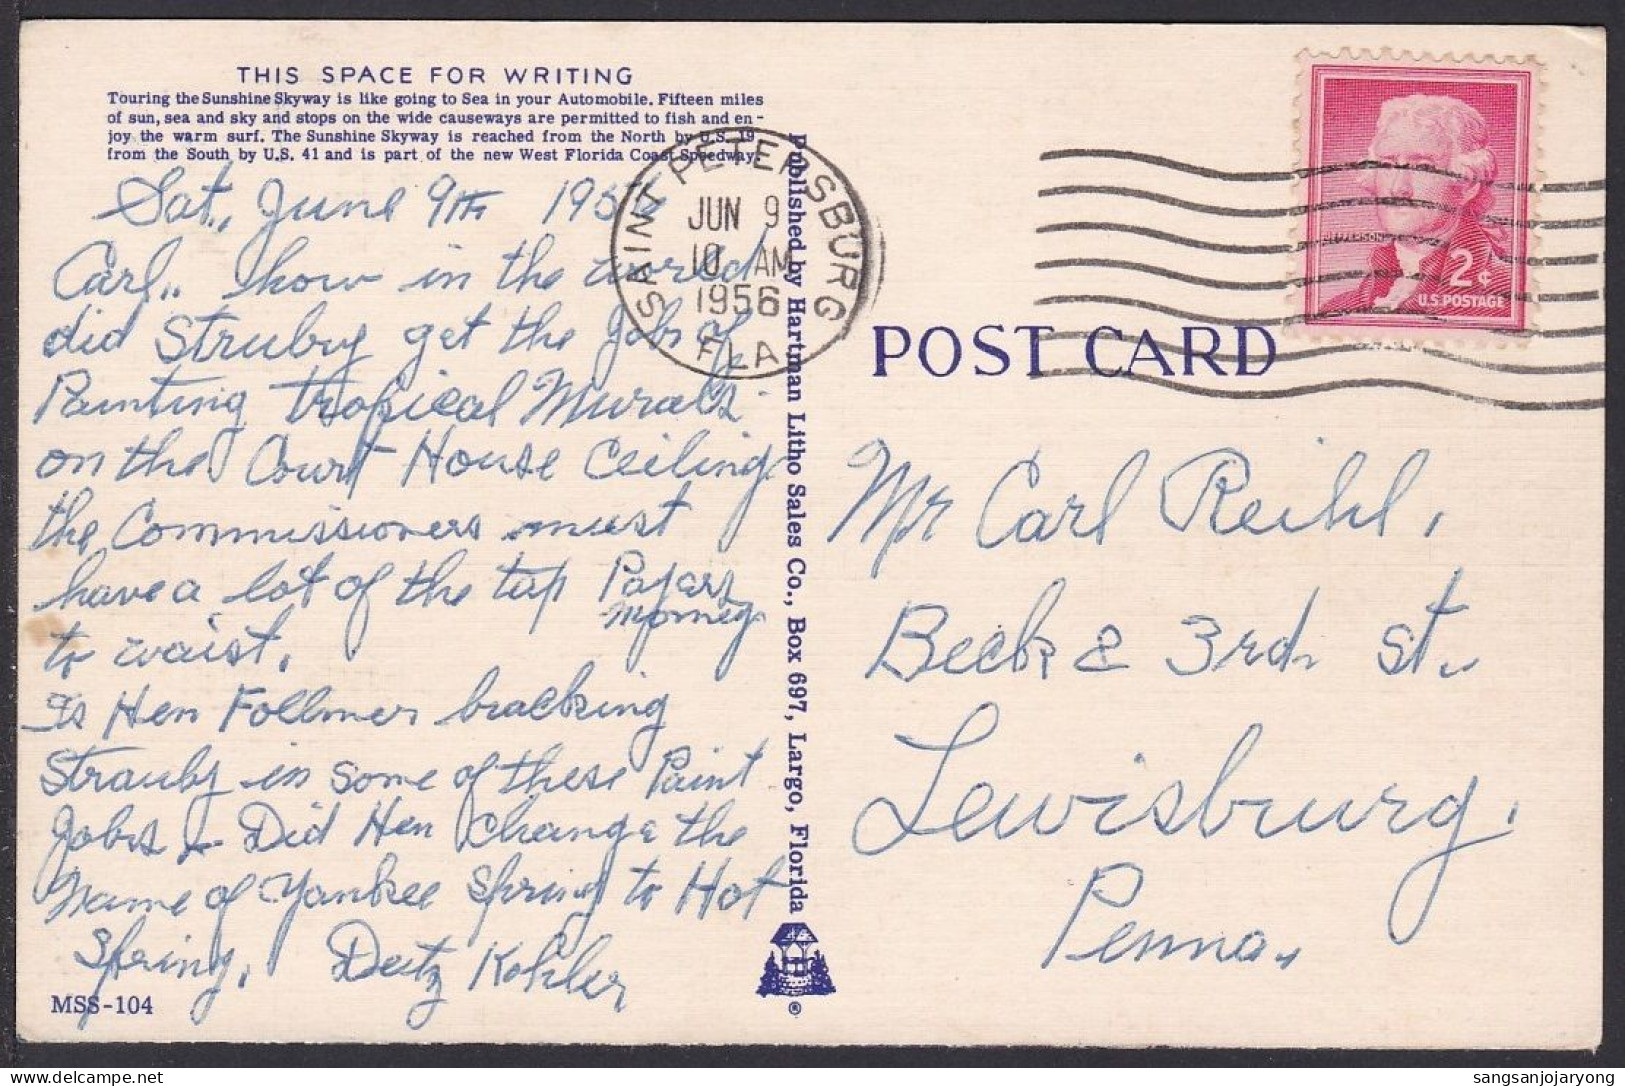 THIS SPACE FOR WRITING
Touring the Sunshine Skyway is like going to Sea in your Automobile. Fifteen miles
of sun, sea and sky and stops on the wide causeways are permitted to fish and en-
joy the warm surf. The Sunshine Skyway is reached from the North by U.S. 19
from the South by U.S. 41 and is part of the new West Florida Coast Speedway.
Sat., June 9TH 1956
Carl,, how in the world
did Struby get the Jobs of
Painting tropical Murals
on the Court House Ceiling
the Commissioners must
have a lot of the tax Papers
money
to waist.
Is Hen Follmer backing
Strauby in some of these Paint
Jobs Did Hen change the
name of Yankee Spring to Hot
Spring. Deitz Kohler
MSS-104
Published by Hartman Litho Sales Co., Box 697, Largo, Florida
®
SAINT PETERSBURG
JUN 9
10 AM
1956
FLA
JEFFERSON
2¢
U.S. POSTAGE
POST CARD
Mr Carl Reihl,
Beck & 3rd. St.
Lewisburg,
Penna.
sangsanjojaryong